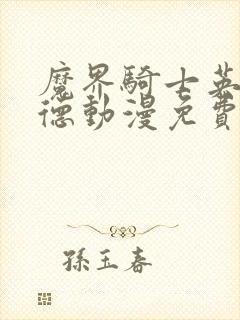 魔界騎士英
德動漫免費
孫玉春